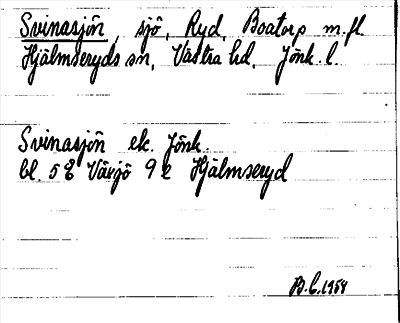 Svinasjön, sjö, Ryd, Boatorp m.fl.
Hjälmseryds sn, Västra hd, Jönk. l.
Svinasjön ek. Jönk.
bl. 5 E Växjö 9 e Hjälmseryd
B.C. 1954